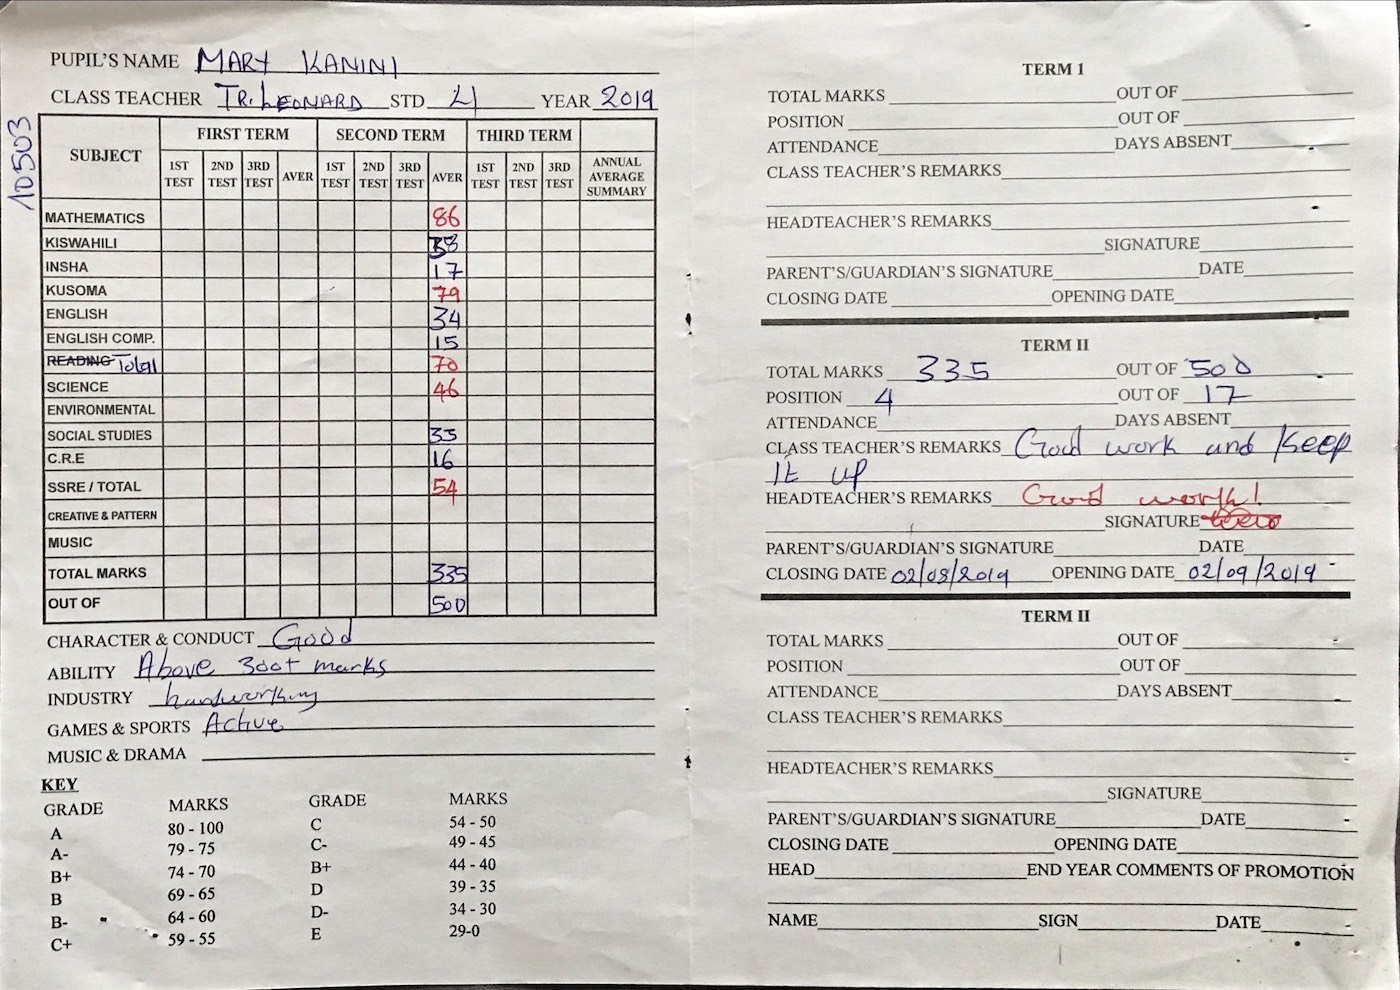 PUPIL'S NAME MARY KANINI
CLASS TEACHER TR. LEONARD STD 4 YEAR 2019
10503
SUBJECT FIRST TERM SECOND TERM THIRD TERM
1ST TEST 2ND TEST 3RD TEST AVER 1ST TEST 2ND TEST 3RD TEST AVER 1ST TEST 2ND TEST 3RD TEST ANNUAL AVERAGE SUMMARY
MATHEMATICS 86
KISWAHILI 38
INSHA 17
KUSOMA 79
ENGLISH 34
ENGLISH COMP. 15
READING Total 70
SCIENCE 46
ENVIRONMENTAL
SOCIAL STUDIES 33
C.R.E 16
SSRE / TOTAL 54
CREATIVE & PATTERN
MUSIC
TOTAL MARKS 335
OUT OF 500
CHARACTER & CONDUCT Good
ABILITY Above 300+ marks
INDUSTRY hardworking
GAMES & SPORTS Active
MUSIC & DRAMA
KEY
GRADE MARKS GRADE MARKS
A 80 - 100 C 54 - 50
A- 79 - 75 C- 49 - 45
B+ 74 - 70 B+ 44 - 40
B 69 - 65 D 39 - 35
B- 64 - 60 D- 34 - 30
C+ 59 - 55 E 29-0
TERM 1
TOTAL MARKS OUT OF
POSITION OUT OF
ATTENDANCE DAYS ABSENT
CLASS TEACHER'S REMARKS
HEADTEACHER'S REMARKS
SIGNATURE
PARENT'S/GUARDIAN'S SIGNATURE DATE
CLOSING DATE OPENING DATE
TERM II
TOTAL MARKS 335 OUT OF 500
POSITION 4 OUT OF 17
ATTENDANCE DAYS ABSENT
CLASS TEACHER'S REMARKS Good work and keep
it up
HEADTEACHER'S REMARKS Good work!
SIGNATURE
PARENT'S/GUARDIAN'S SIGNATURE DATE
CLOSING DATE 02/08/2019 OPENING DATE 02/09/2019
TERM II
TOTAL MARKS OUT OF
POSITION OUT OF
ATTENDANCE DAYS ABSENT
CLASS TEACHER'S REMARKS
HEADTEACHER'S REMARKS
SIGNATURE
PARENT'S/GUARDIAN'S SIGNATURE DATE
CLOSING DATE OPENING DATE
HEAD END YEAR COMMENTS OF PROMOTION
NAME SIGN DATE